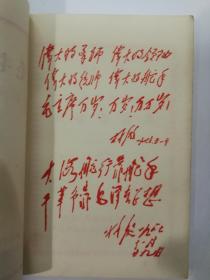 伟大的导师 伟大的领袖
伟大的统帅 伟大的舵手
毛主席万岁！万岁！万万岁！
林彪
大海航行靠舵手
干革命靠毛泽东思想
林彪